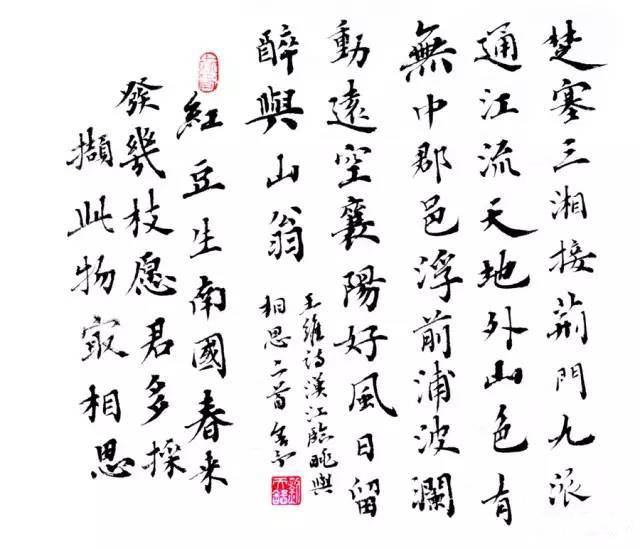 楚塞三湘接荊門九派
通江流天地外山色有
無中郡邑浮前浦波瀾
動遠空襄陽好風日留
醉與山翁
王維诗漢江臨眺與
相思二首
紅豆生南國春来
發幾枝愿君多採
擷此物㝡相思